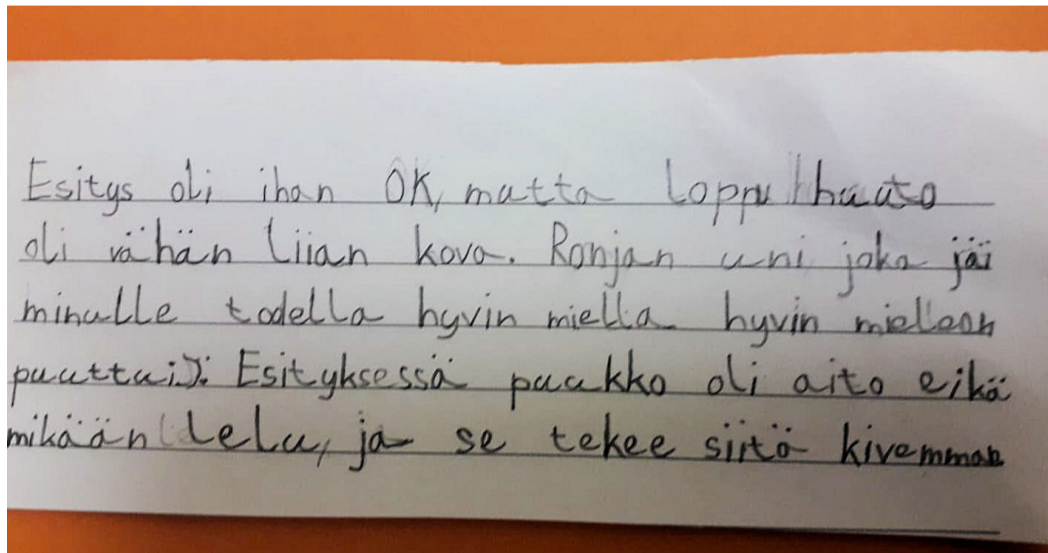 Esitys oli ihan OK, mutta loppu huuto
oli vähän liian kova. Ronjan uni joka jäi
minulle todella hyvin miella hyvin mieleen
puuttui): Esityksessä puukko oli aito eikä
mikään lelu, ja se tekee siitä kivemman